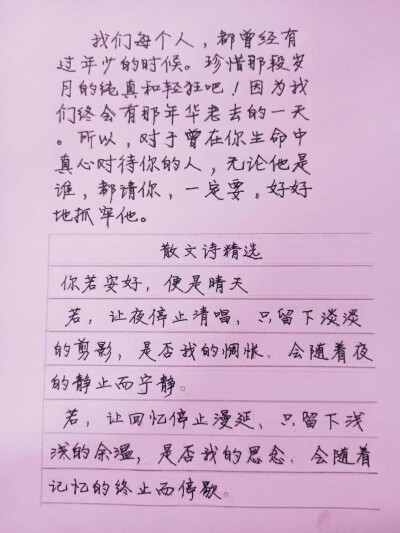 我们每个人，都曾经有
过年少的时候。珍惜那段岁
月的纯真和轻狂吧！因为我
们终会有那年华老去的一天
。所以，对于曾在你生命中
真心对待你的人，无论他是
谁，都请你，一定要。好好
地抓牢他。
散文诗精选
你若安好，便是晴天
若，让夜停止清唱，只留下淡淡
的剪影，是否我的惆怅、会随着夜
的静止而宁静。
若，让回忆停止漫延、只留下浅
浅的余温，是否我的思念、会随着
记忆的终止而停歇。